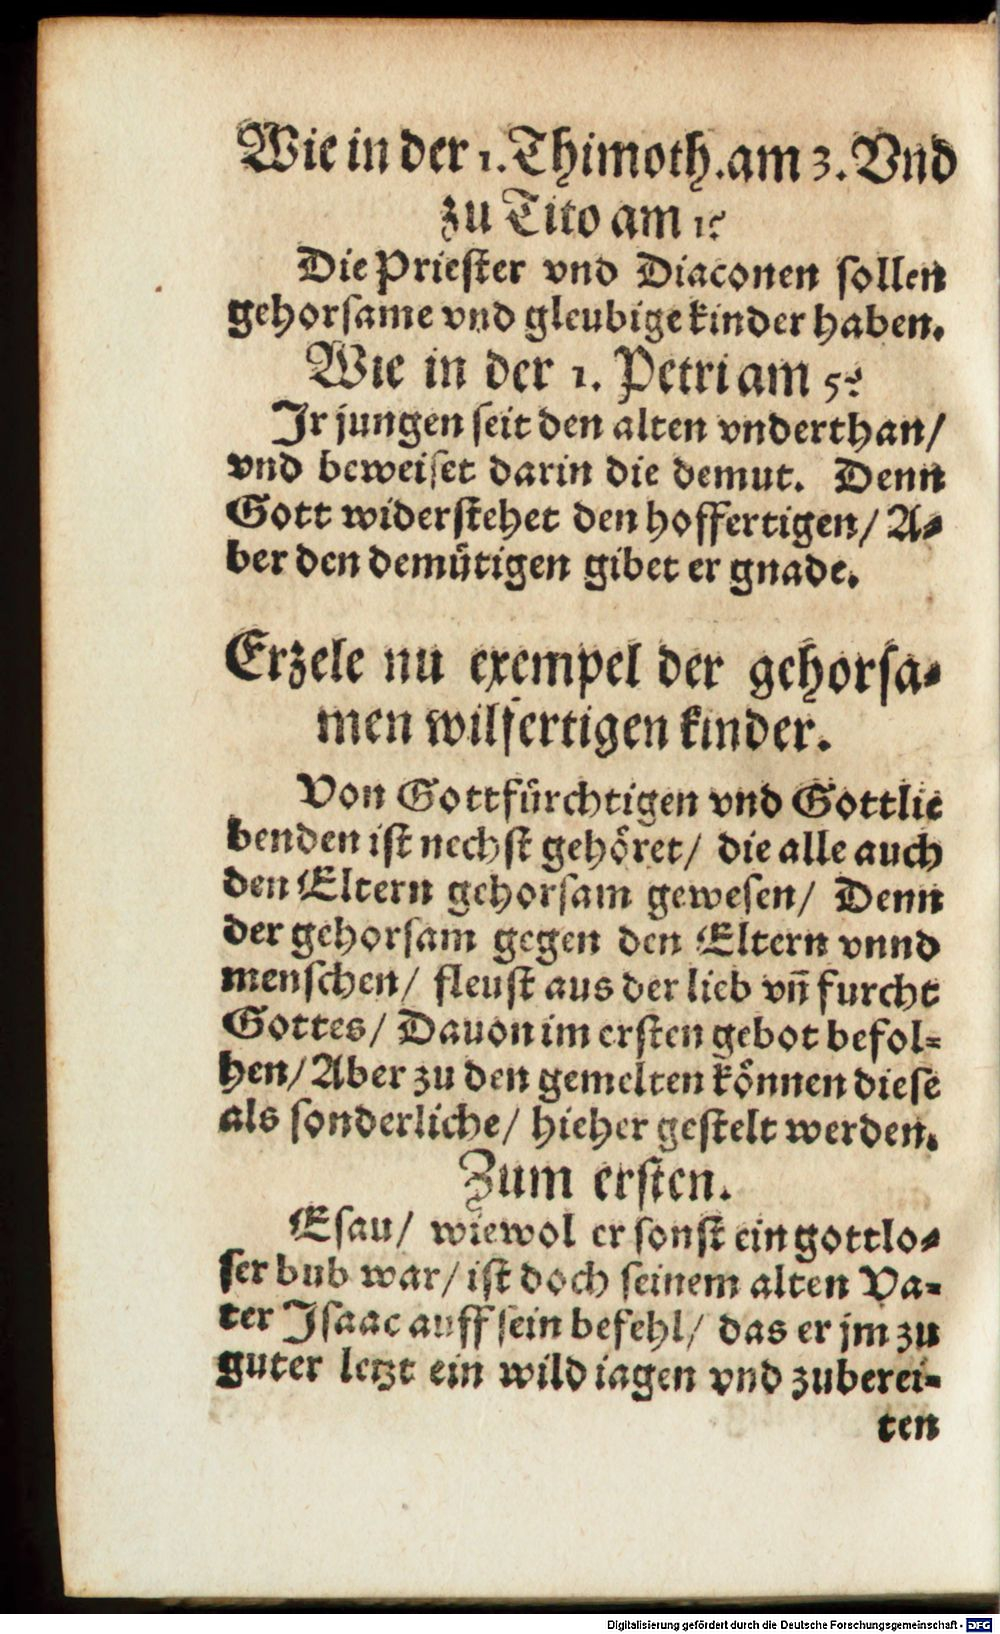 Wie in der 1. Thimoth. am 3. Vnd
zu Tito am 1?
Die Priester vnd Diaconen sollen
gehorsame vnd gleubige kinder haben.
Wie in der 1. Petri am 5?
Jr jungen seit den alten vnderthan/
vnd beweiset darin die demut. Denn
Gott widerstehet den hoffertigen/ A-
ber den demütigen gibet er gnade.
Erzele nu exempel der gehorsa-
men wilfertigen kinder.
Von Gottfürchtigen vnd Gottlie
benden ist nechst gehöret/ die alle auch
den Eltern gehorsam gewesen/ Denn
der gehorsam gegen den Eltern vnnd
menschen/ fleust aus der lieb vñ furcht
Gottes/ Dauon im ersten gebot befol-
hen/ Aber zu den gemelten können diese
als sonderliche/ hieher gestelt werden.
Zum ersten.
Esau/ wiewol er sonst ein gottlo-
ser bub war/ ist doch seinem alten Va-
ter Jsaac auff sein befehl/ das er jm zu
guter letzt ein wild iagen vnd zuberei-
ten
Digitalisierung gefördert durch die Deutsche Forschungsgemeinschaft - DFG